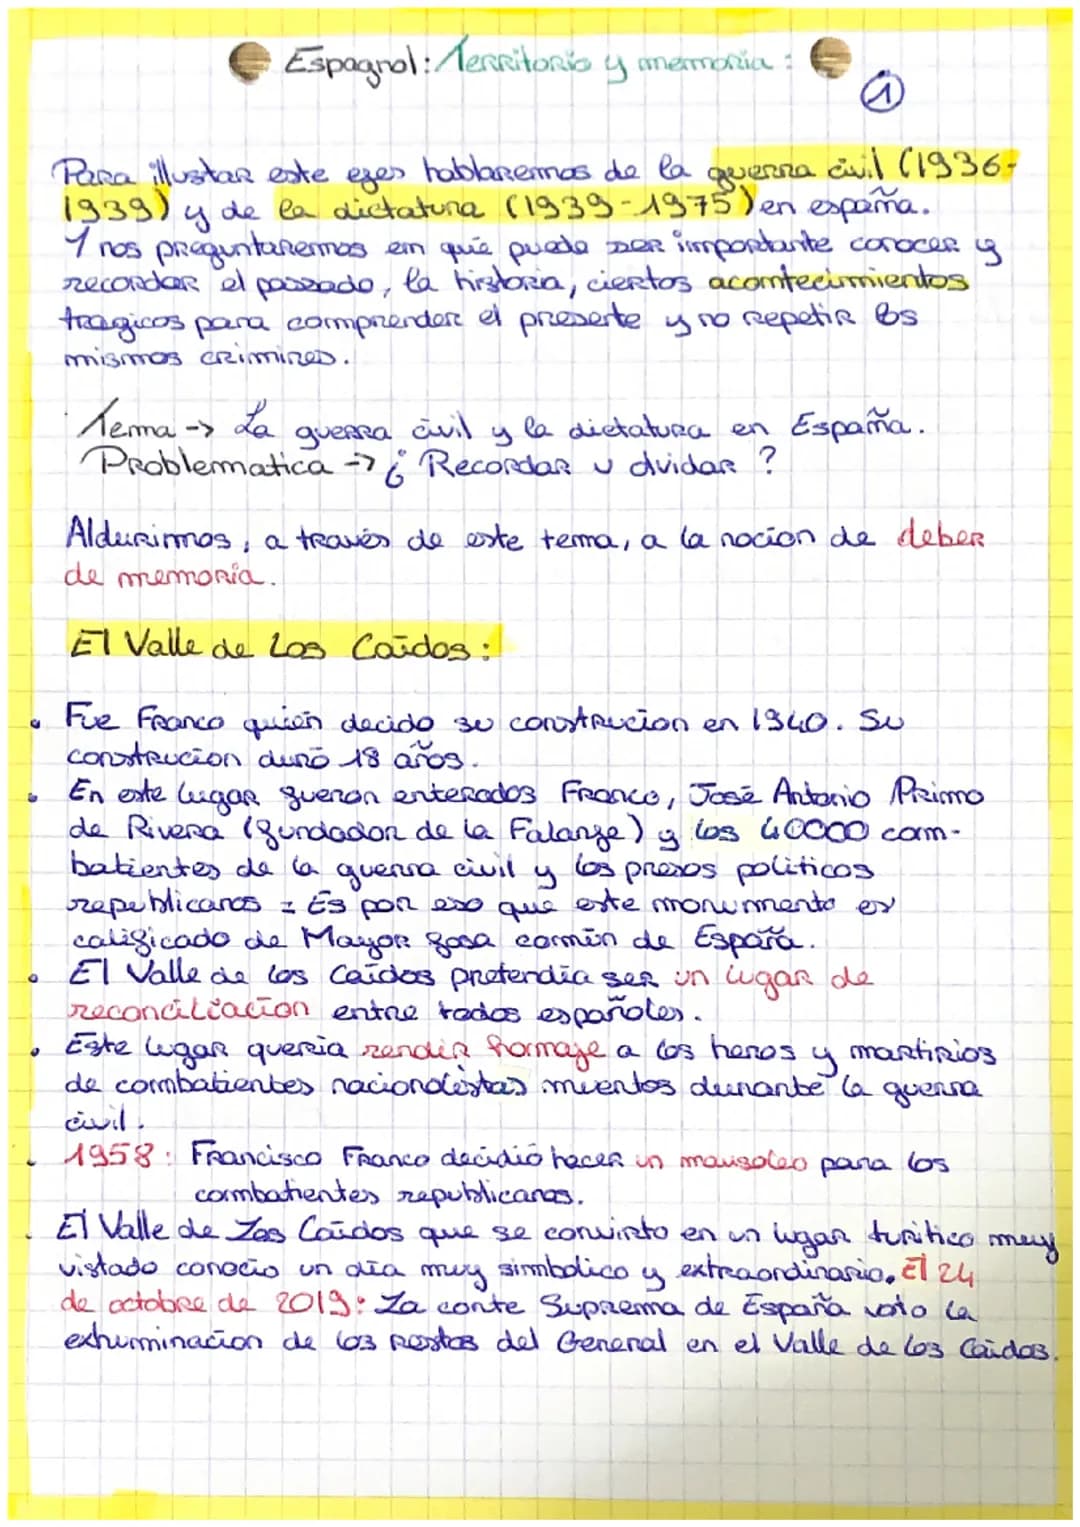 Espagnol: Territorio y memoria :
1
Para illustar este ejes hablaremos de la guerra civil (1936-
1939) y de la dictatura (1939-1975) en españa.
Y nos preguntaremos en qué puede ser importante conocer y
recordar el passado, la historia, ciertos acontecimientos
tragicos para comprender el presente y no repetir los
mismos crimines.
Tema -> La guerra civil y la dictatura en España.
Problematica -> ¿ Recordar u olvidar ?
Aldurimos, a través de este tema, a la nocion de deber
de memoria.
El Valle de Los Caídos :
Fue Franco quién decido su construcion en 1940. Su
construcion duró 18 años.
En este lugar fueron enterados Franco, José Antonio Primo
de Rivera (fundador de la Falange) y los 40000 com-
batientes de la guerra civil y los presos politicos
republicanos = Es por eso que este monumento es
calificado de Mayor fosa común de España.
El Valle de los Caídos pretendía ser un lugar de
reconciliación entre todos españoles.
Este lugar queria rendir homaje a los heros y martirios
de combatientes nacionalistas muertos durante la guerra
civil.
1958 : Francisco Franco decidió hacer un mausoleo para los
combatientes republicanos.
El Valle de Los Caídos que se convirto en un lugar turitico muy
vistado conocio un día muy simbolico y extraordinario. El 24
de octobre de 2019: La corte Suprema de España voto la
exhuminacion de los restos del General en el Valle de los Caidos.